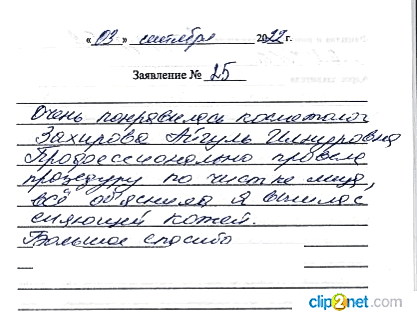 « 03 » сентября 2022 г.
Заявление № 25
Очень понравилась косметолог
Захирова Айгуль Илнуровна
Профессионально провела
процедуру по чистке лица,
всё объяснила Я вышла с
сияющей кожей.
Большое спасибо
clip2net.com